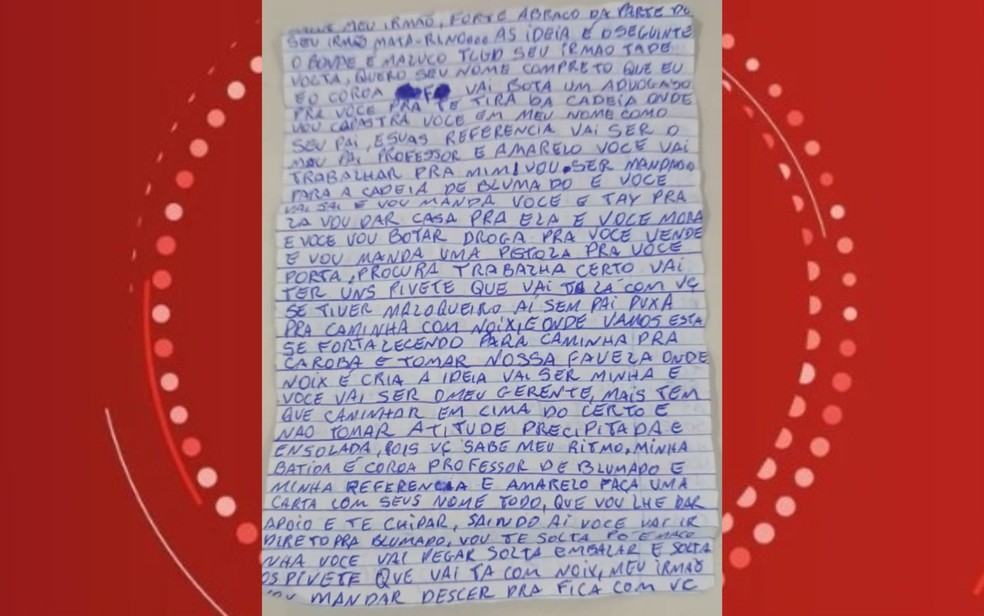 MEU IRMÃO, FORTE ABRAÇO DA PARTE DO
SEU IRMÃO MATA-RINDO... AS IDEIA É OSEGUINTE
O BONDE É MALUCO TLGD SEU IRMÃO TADE
VOLTA, QUERO SEU NOME COMPRETO QUE EU
EO COROA VAI BOTA UM ADVOGADO
PRA VOCE PRA TE TIRA DA CADEIA ONDE
VOU CAPASTRA VOCE EM MEU NOME COMO
SEU PAI, ESUAS REFERENCIA VAI SER O
MEU PAI PROFESSOR E AMARELO VOCE VAI
TRABALHAR PRA MIM, VOU SER MANDADO
PARA A CADEIA DE BLUMADO E VOCE
VAI SAI E VOU MANDA VOCE E TAY PRA
LA VOU DAR CASA PRA ELA E VOCE MORA
E VOCE VOU BOTAR DROGA PRA VOCE VENDE
E VOU MANDA UMA PISTOLA PRA VOCE
PORTA, PROCURA TRABALHA CERTO VAI
TER UNS PIVETE QUE VAI TA LÁ COM VÇ
SE TIVER MALOQUEIRO AÍ SEM PAI PUXA
PRA CAMINHA COM NOIX, E ONDE VAMOS ESTA
SE FORTALECENDO PARA CAMINHA PRA
CAROBA E TOMAR NOSSA FAVELA ONDE
NOIX É CRIA A IDEIA VAI SER MINHA E
VOCE VAI SER OMEU GERENTE, MAIS TEM
QUE CAMINHAR EM CIMA DO CERTO E
NÃO TOMAR ATITUDE PRECIPITADA E
ENSOLADA, POIS VÇ SABE MEU RITMO, MINHA
BATIDA É COROA PROFESSOR DE BLUMADO E
MINHA REFERENCIA E AMARELO FAÇA UMA
CARTA COM SEUS NOME TODO, QUE VOU LHE DAR
APOIO E TE CUIDAR, SAINDO AÍ VOCE VAI IR
DIRETO PRA BLUMADO, VOU TE SOLTA PÓ E MACO
NHA VOCE VAI PEGAR SOLTA EMBALAR E SOLTA
OS PIVETE QUE VAI TA COM NOIX, MEU IRMÃO
VOU MANDAR DESCER PRA FICA COM VC